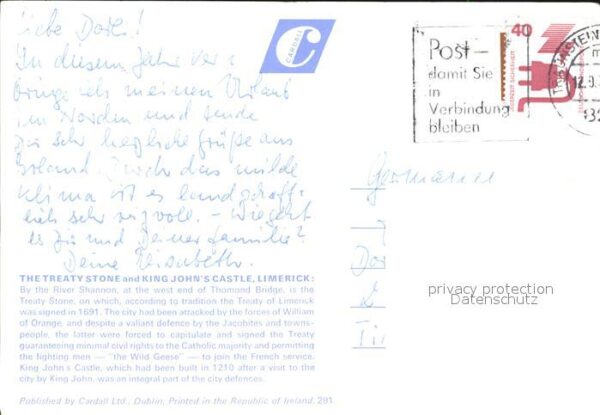 Liebe Dores!
In diesem Jahr ver-
bringe ich meinen Urlaub
im Norden und sende
Dir sehr herzliche Grüße aus
Irland. Durch das milde
Klima ist es landschaft-
lich sehr reizvoll. – Wie geht
es Dir und Deiner Familie?
Deine Elisabeth.
CARDALL
Post –
damit Sie
in
Verbindung
bleiben
40
TRAUNSTEIN
Germany
privacy protection
Datenschutz
THE TREATY STONE and KING JOHN'S CASTLE, LIMERICK:
By the River Shannon, at the west end of Thomond Bridge, is the
Treaty Stone, on which, according to tradition the Treaty of Limerick
was signed in 1691. The city had been attacked by the forces of William
of Orange, and despite a valiant defence by the Jacobites and towns-
people, the latter were forced to capitulate and signed the Treaty
guaranteeing minimal civil rights to the Catholic majority and permitting
the fighting men — "the Wild Geese" — to join the French service.
King John's Castle, which had been built in 1210 after a visit to the
city by King John, was an integral part of the city defences.
Published by Cardall Ltd., Dublin, Printed in the Republic of Ireland. 291